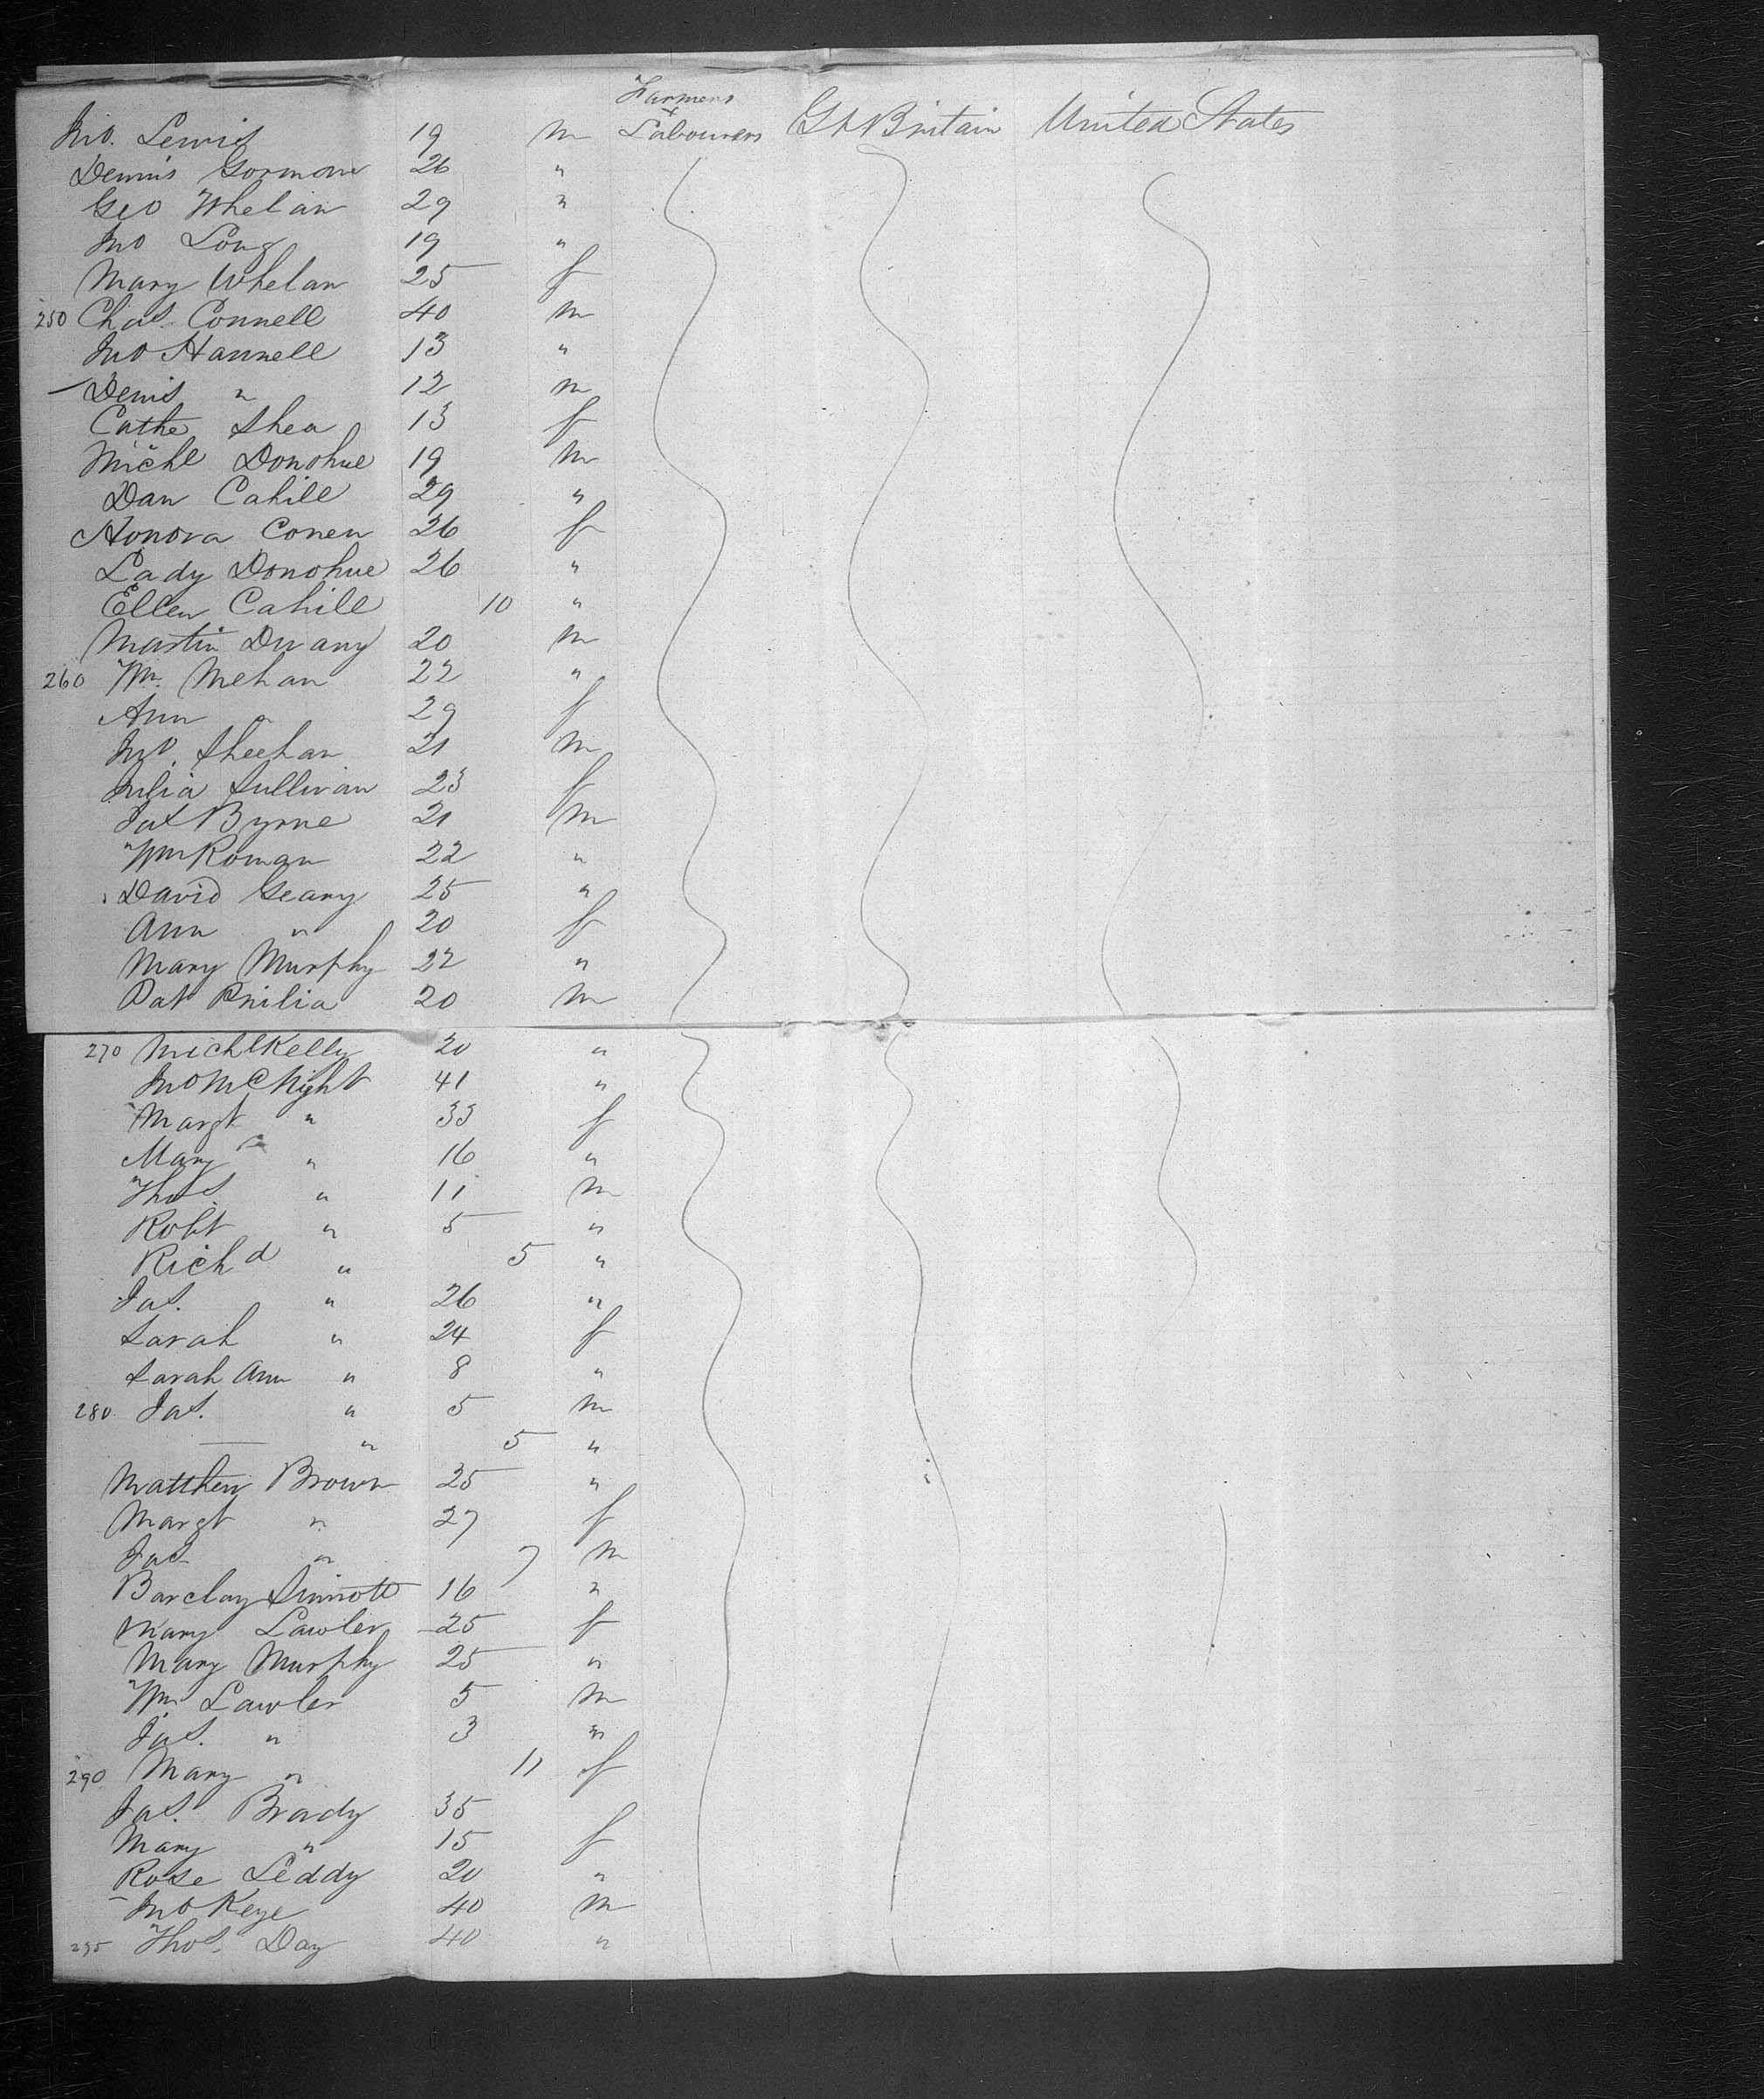 Jno. Lewis 19 m Farmers & Labourers Gt Britain United States
Dennis Gormon 26 "
Geo Whelan 29 "
Jno Long 19 "
Mary Whelan 25 f
250 Chas. Connell 40 m
Jno Hannell 13 "
Denis " 12 m
Cathe Shea 13 f
Michl Donohue 19 m
Dan Cahill 29 "
Honora Conen 26 f
Lady Donohue 26 "
Ellen Cahill 10 "
Martin 20 m
260 Wm. Mehan 22 "
Ann " 29 f
Jno. Sheehan 21 m
Julia Sullivan 23 f
Jas Byrne 21 m
Wm Roman 22 "
David Geary 25 "
Ann " 20 f
Mary Murphy 22 "
Pat 20 m
270 Michl Kelly 20 "
Jno McNight 41 "
Margt " 33 f
Mary " 16 "
Thos. " 11 m
Robt " 5 "
Richd " 5 "
Jas. " 26 "
Sarah " 24 f
Sarah Ann " 8 "
280. Jas. " 5 m
— " 5 "
Matthew Brown 25 "
Margt " 27 f
Jas " 7 m
Barclay Sinnott 16 "
Mary Lawler 25 f
Mary Murphy 25 "
Wm Lawler 5 m
Jas. " 3 "
290 Mary " 11 f
Jas. Brady 35
Mary " 15 f
Rose Leddy 20 "
Jno Keye 40 m
295 Thos. Day 40 "